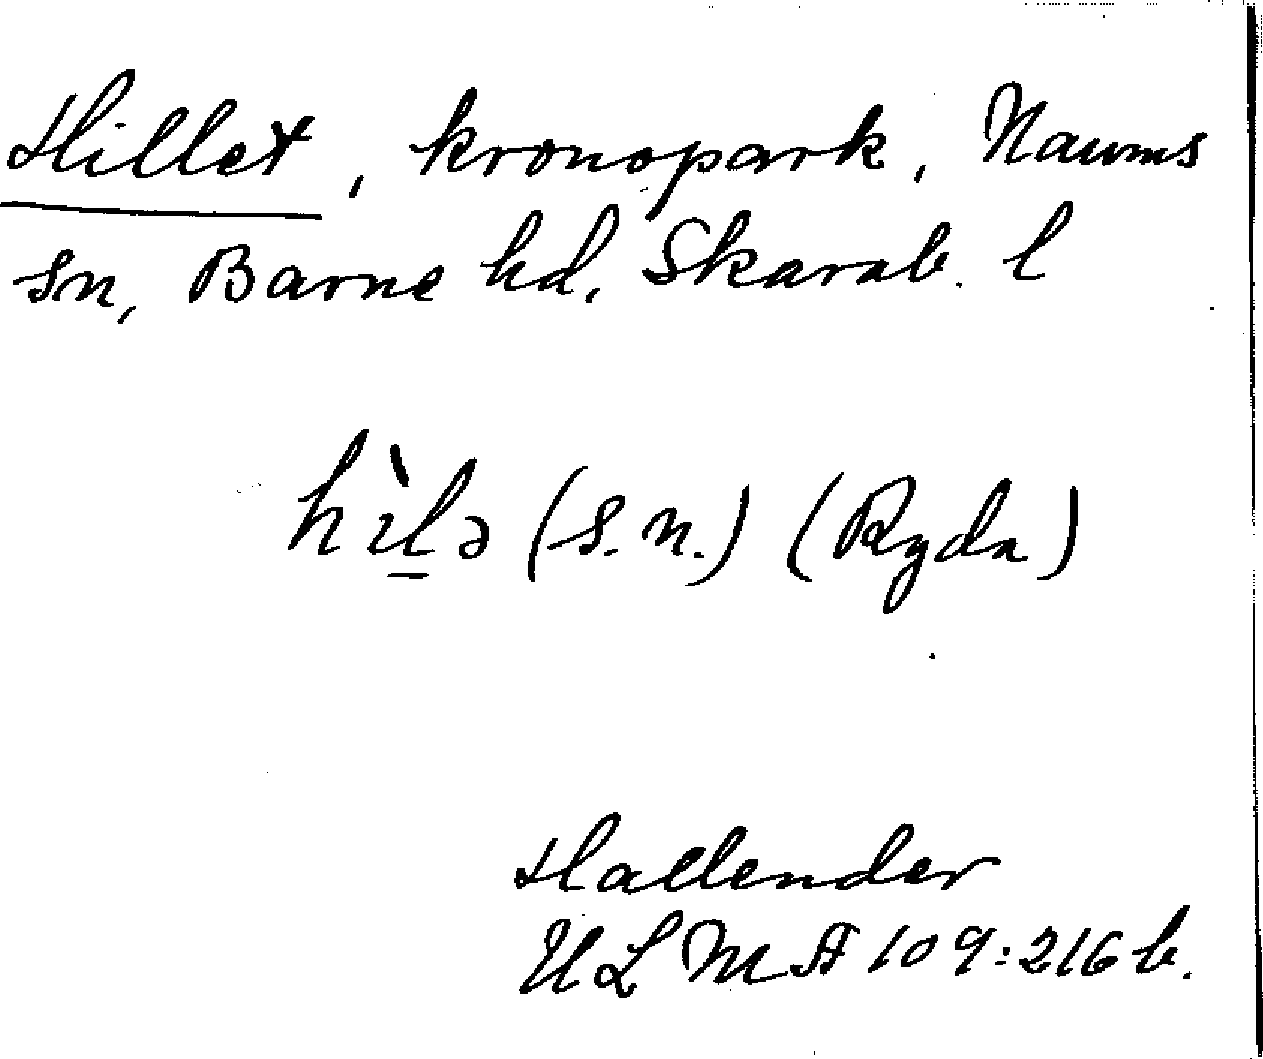 Hillet, kronopark, Naums
sn, Barne hd, Skarab. l
hìlə (s.n.) (Ryda)
Hallender
ULMA 109:216b.